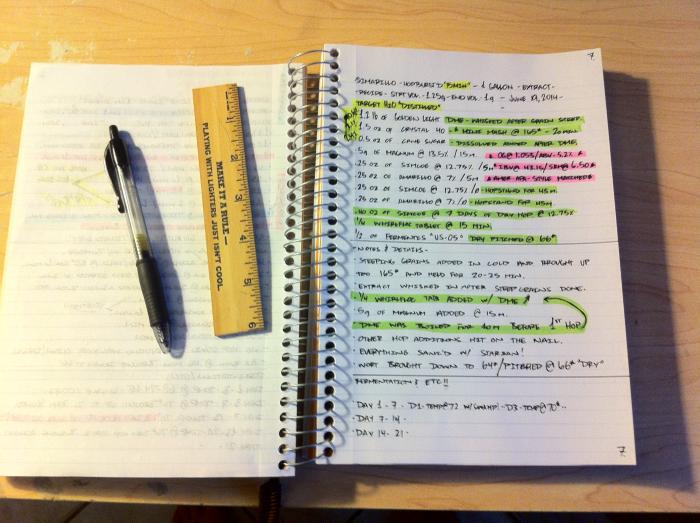 MAKE IT A RULE—
PLAYING WITH LIGHTERS JUST ISN'T COOL
1
2
3
4
5
6
7
SIMARILLO - HOPBURSTD "15MIN" - 1 GALLON - EXTRACT -
RECIPE - START VOL - 1.25g - END VOL - 1g - JUNE 19, 2014 -
TARGET H2O "DISTILLED"
1.2 lb OF GOLDEN LIGHT DME - WHISKED AFTER GRAIN STEEP
1.5 oz OF CRYSTAL 40 - MINI MASH @ 165° - 20 MIN
0.5 oz OF CANE SUGAR - DISSOLVED ADDED AFTER DME
5g OF MAGNUM @ 13.5% / 15 m. OG@ 1.055/ABV-5.2%
.25 oz OF SIMCOE @ 12.75% / 5m IBU@ 42.16/SRM@ 6.50
.25 oz OF AMARILLO @ 7% / 5m AMER APA - STYLE MATCHED
.25 oz OF SIMCOE @ 12.75% / 0 - HOPSTAND FOR 45m.
.25 oz OF AMARILLO @ 7% / 0 - HOPSTAND FOR 45m
.40 oz OF SIMCOE @ 7 DAYS OF DRY HOP @ 12.75%
1/4 WHIRLFLOC TABLET @ 15 MIN.
1/2 OF FERMENTIS "US-05" DRY PITCHED @ 66°
- NOTES & DETAILS -
- STEEPING GRAINS ADDED IN COLD AND BROUGHT UP
TOO 165° AND HELD FOR 20-25 MIN.
- EXTRACT WHISKED IN AFTER STEEP GRAINS DONE.
- 1/4 WHIRLFLOC TAB ADDED W/ DME
- 5g OF MAGNUM ADDED @ 15m.
- DME WAS BOILED FOR 10m BEFORE 1ST HOP
- OTHER HOP ADDITIONS HIT ON THE NAIL.
- EVERYTHING SANI'D W/ STARSAN!
- WORT BROUGHT DOWN TO 64°/PITCHED @ 66° "DRY"
FERMENTATION & ETC!!
- DAY 1 - 7 - D1-TEMP@72 - D3-TEMP@70°-
- DAY 7 - 14 -
- DAY 14 - 21 -
7